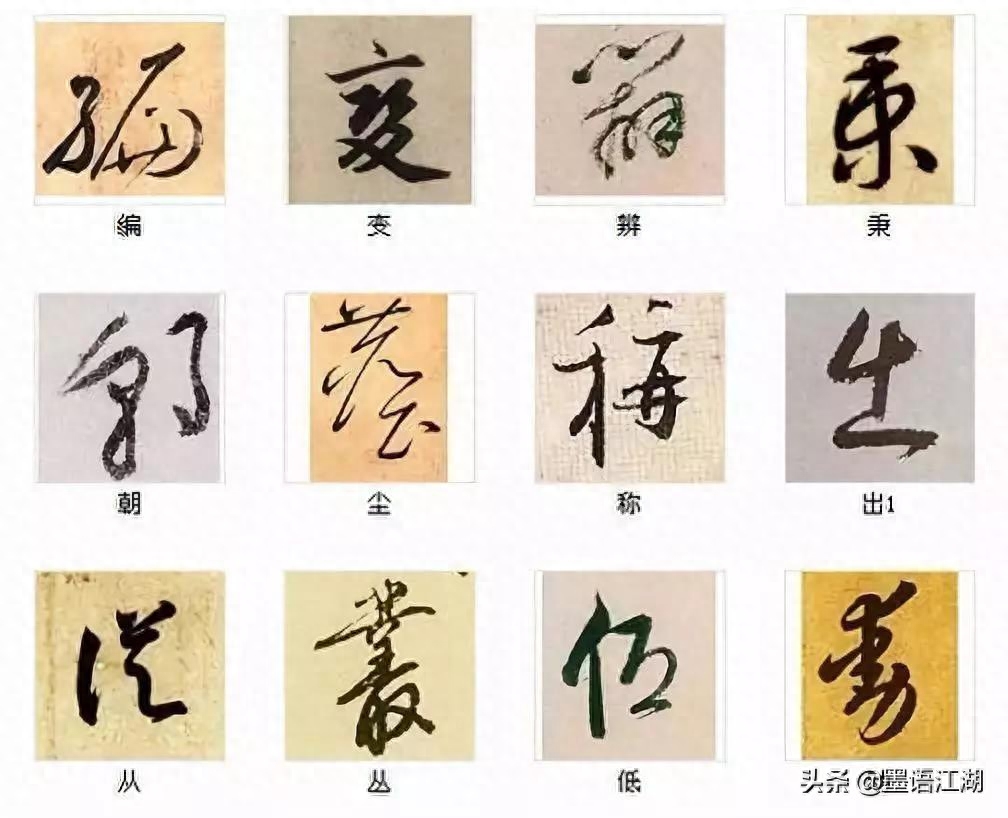 编 变 辨 秉
朝 尘 称 出1
从 丛 低
头条 @墨语江湖